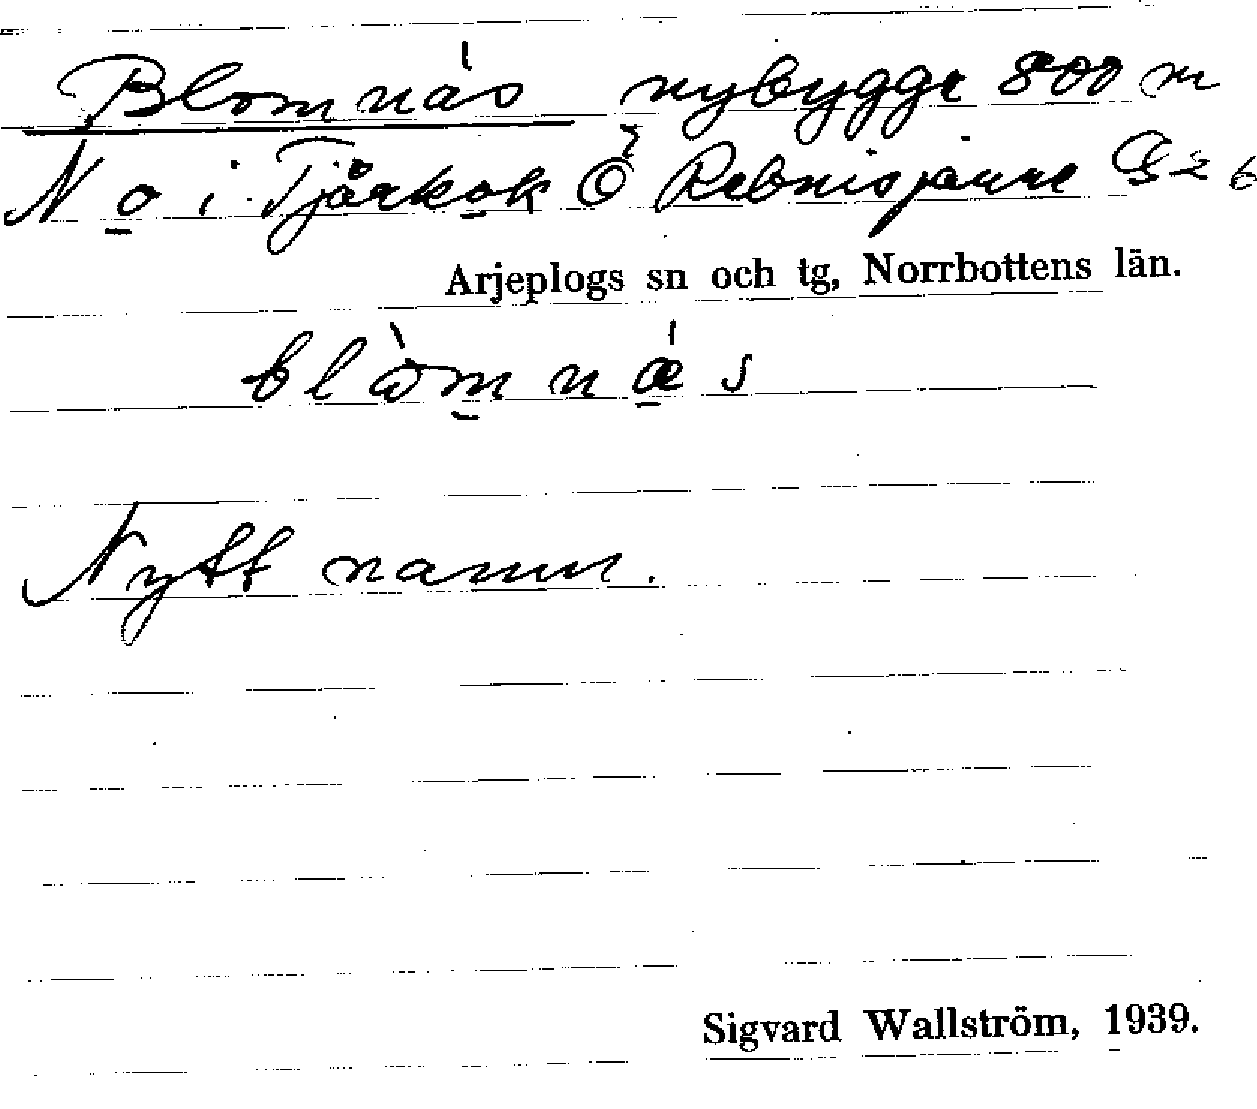 Blomnäs nybygge 800 m
N o i Tjårkok Ö Rebnisjaure G 2 b
Arjeplogs sn och tg, Norrbottens län.
blòmnǽs
Nytt namn.
Sigvard Wallström, 1939.